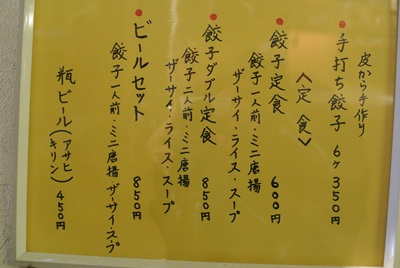 皮から手作り
●手打ち餃子 6ヶ 350円
〈定食〉
●餃子定食 600円
餃子一人前・ミニ唐揚
ザーサイ・ライス・スープ
●餃子ダブル定食 850円
餃子二人前・ミニ唐揚
ザーサイ・ライス・スープ
●ビールセット 850円
餃子一人前・ミニ唐揚 ザーサイ・スープ
瓶ビール(アサヒ キリン) 450円